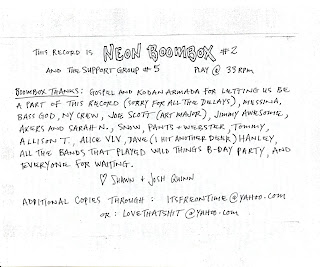 THIS RECORD IS NEON BOOMBOX #2
AND THE SUPPORT GROUP #5 PLAY @ 33RPM
BOOMBOX THANKS: GOSPEL AND KODAN ARMADA FOR LETTING US BE
A PART OF THIS RECORD (SORRY FOR ALL THE DELAYS), MESSINA,
BASS GOD, NY CREW, JOE SCOTT (ART MAJOR), JIMMY AWESOME,
AKERS AND SARAH N., SNOW, PANTS + WEBSTER, TOMMY,
ALLISON T., ALICE VLV, DAVE (I HIT ANOTHER DEER) HANLEY,
ALL THE BANDS THAT PLAYED WILD THINGS B-DAY PARTY, AND
EVERYONE FOR WAITING.
♡ SHAWN + JOSH QUINN
ADDITIONAL COPIES THROUGH: ITSFREONTIME@YAHOO.COM
OR: LOVETHATSHIT@YAHOO.COM